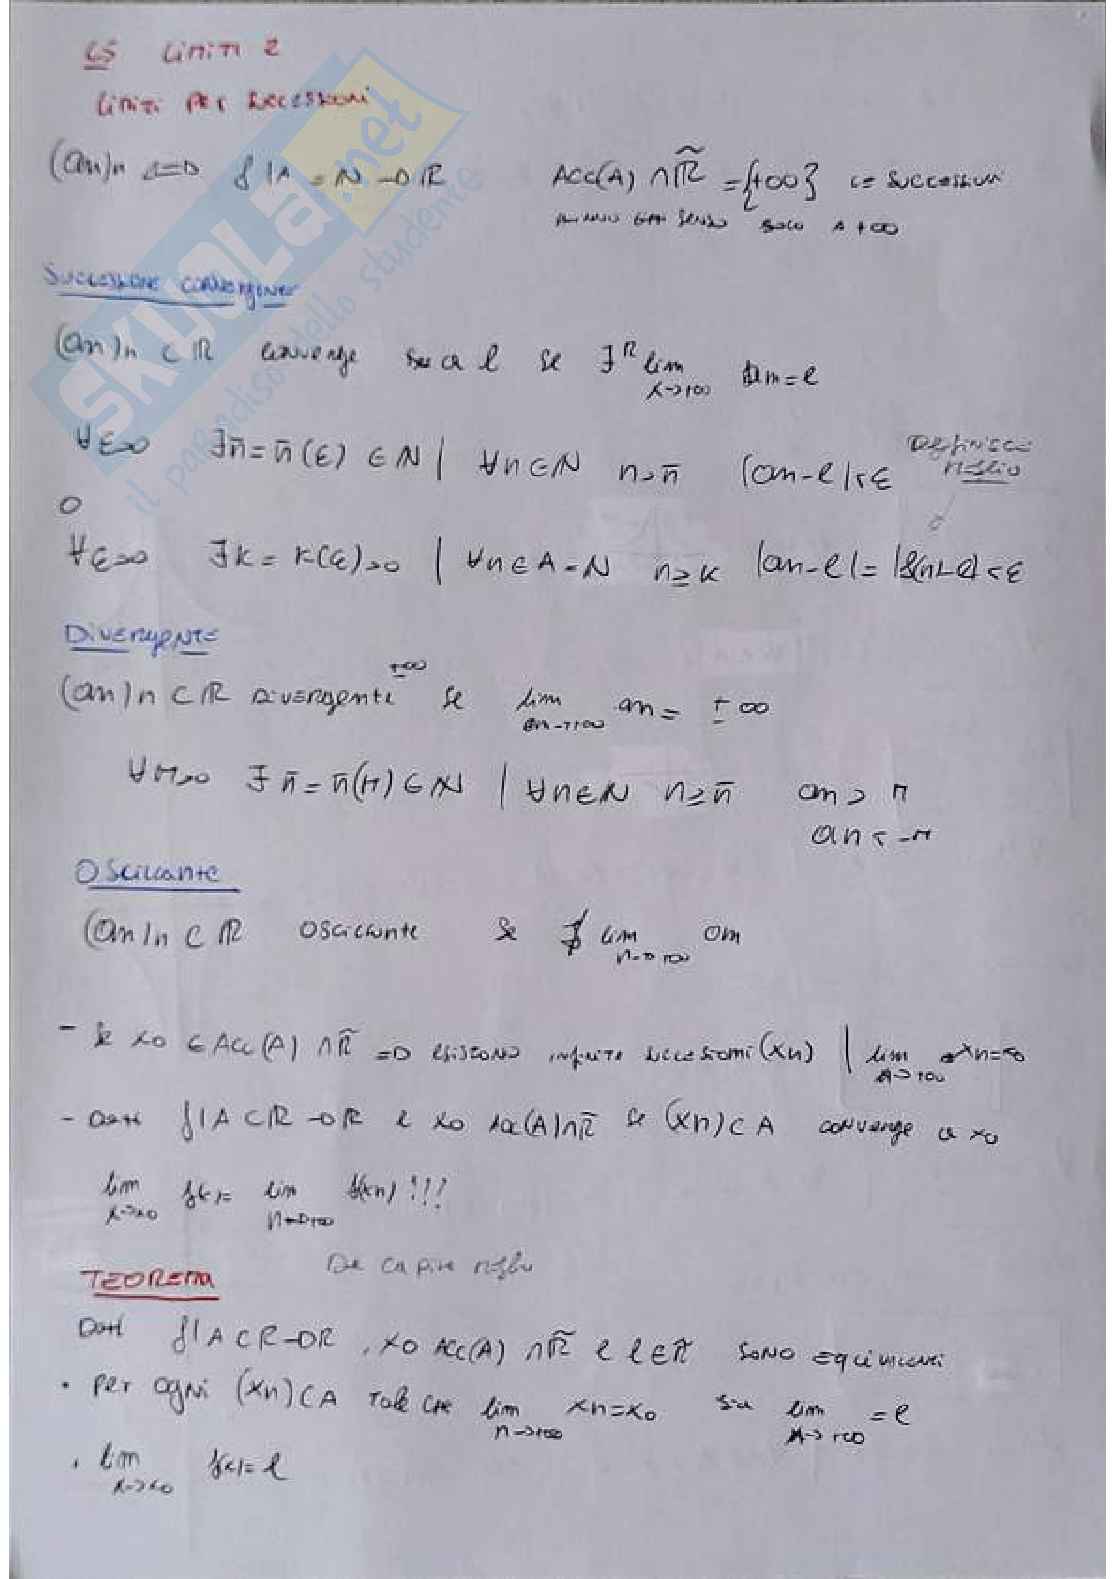 L5 Limiti 2
Limiti per successioni
(an)n <=> f | A = N → R Acc(A) ∩ R̃ = {+∞} le successioni
hanno senso solo a +∞
Successione convergente
(an)n ⊂ R converge a l se ∃ R lim x→+∞ an = l
∀ε>0 ∃n̄ = n̄(ε) ∈ N | ∀n∈N n>n̄ |an-l|<ε Definisce meglio
o
∀ε>0 ∃k = k(ε)>0 | ∀n∈A=N n≥k |an-l| = |f(n)-l|<ε
Divergente
(an)n ⊂ R Divergente ±∞ se lim n→+∞ an = ±∞
∀M>0 ∃n̄ = n̄(M) ∈ N | ∀n∈N n≥n̄ an > M
an < -M
Oscillante
(an)n ⊂ R oscillante se ∄ lim n→+∞ an
- Se x0 ∈ Acc(A) ∩ R̃ => esistono infinite successioni (xn) | lim n→+∞ xn = x0
- Dati f | A ⊂ R → R e x0 Acc(A) ∩ R̃ se (xn) ⊂ A converge a x0
lim x→x0 f(x) = lim n→+∞ f(xn) !!!
Da capire meglio
TEOREMA
Dati f | A ⊂ R → R, x0 Acc(A) ∩ R̃ e l∈R̃ sono equivalenti
• Per ogni (xn) ⊂ A tale che lim n→+∞ xn = x0 sia lim n→+∞ = l
• lim x→x0 f(x) = l
SKUOLA.net
il paradiso dello studente